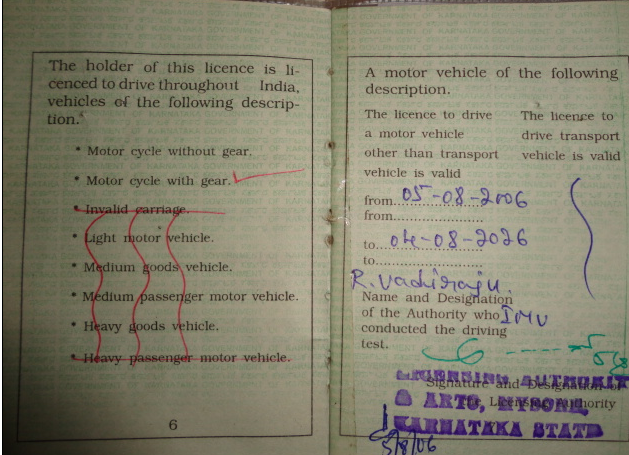 The holder of this licence is li-
cenced to drive throughout India,
vehicles of the following descrip-
tion.
* Motor cycle without gear.
* Motor cycle with gear.
* Invalid carriage.
* Light motor vehicle.
* Medium goods vehicle.
* Medium passenger motor vehicle.
* Heavy goods vehicle.
* Heavy passenger motor vehicle.
6
A motor vehicle of the following
description.
The licence to drive
a motor vehicle
other than transport
vehicle is valid
The licence to
drive transport
vehicle is valid
from 05-08-2006
from
to 04-08-2026
to
R. Vadiraju.
Name and Designation
of the Authority who IMV
conducted the driving
test.
Signature and Designation of
the Licensing Authority
LICENSING AUTHORITY
& ARTO, MYSORE,
KARNATAKA STATE
5/8/06